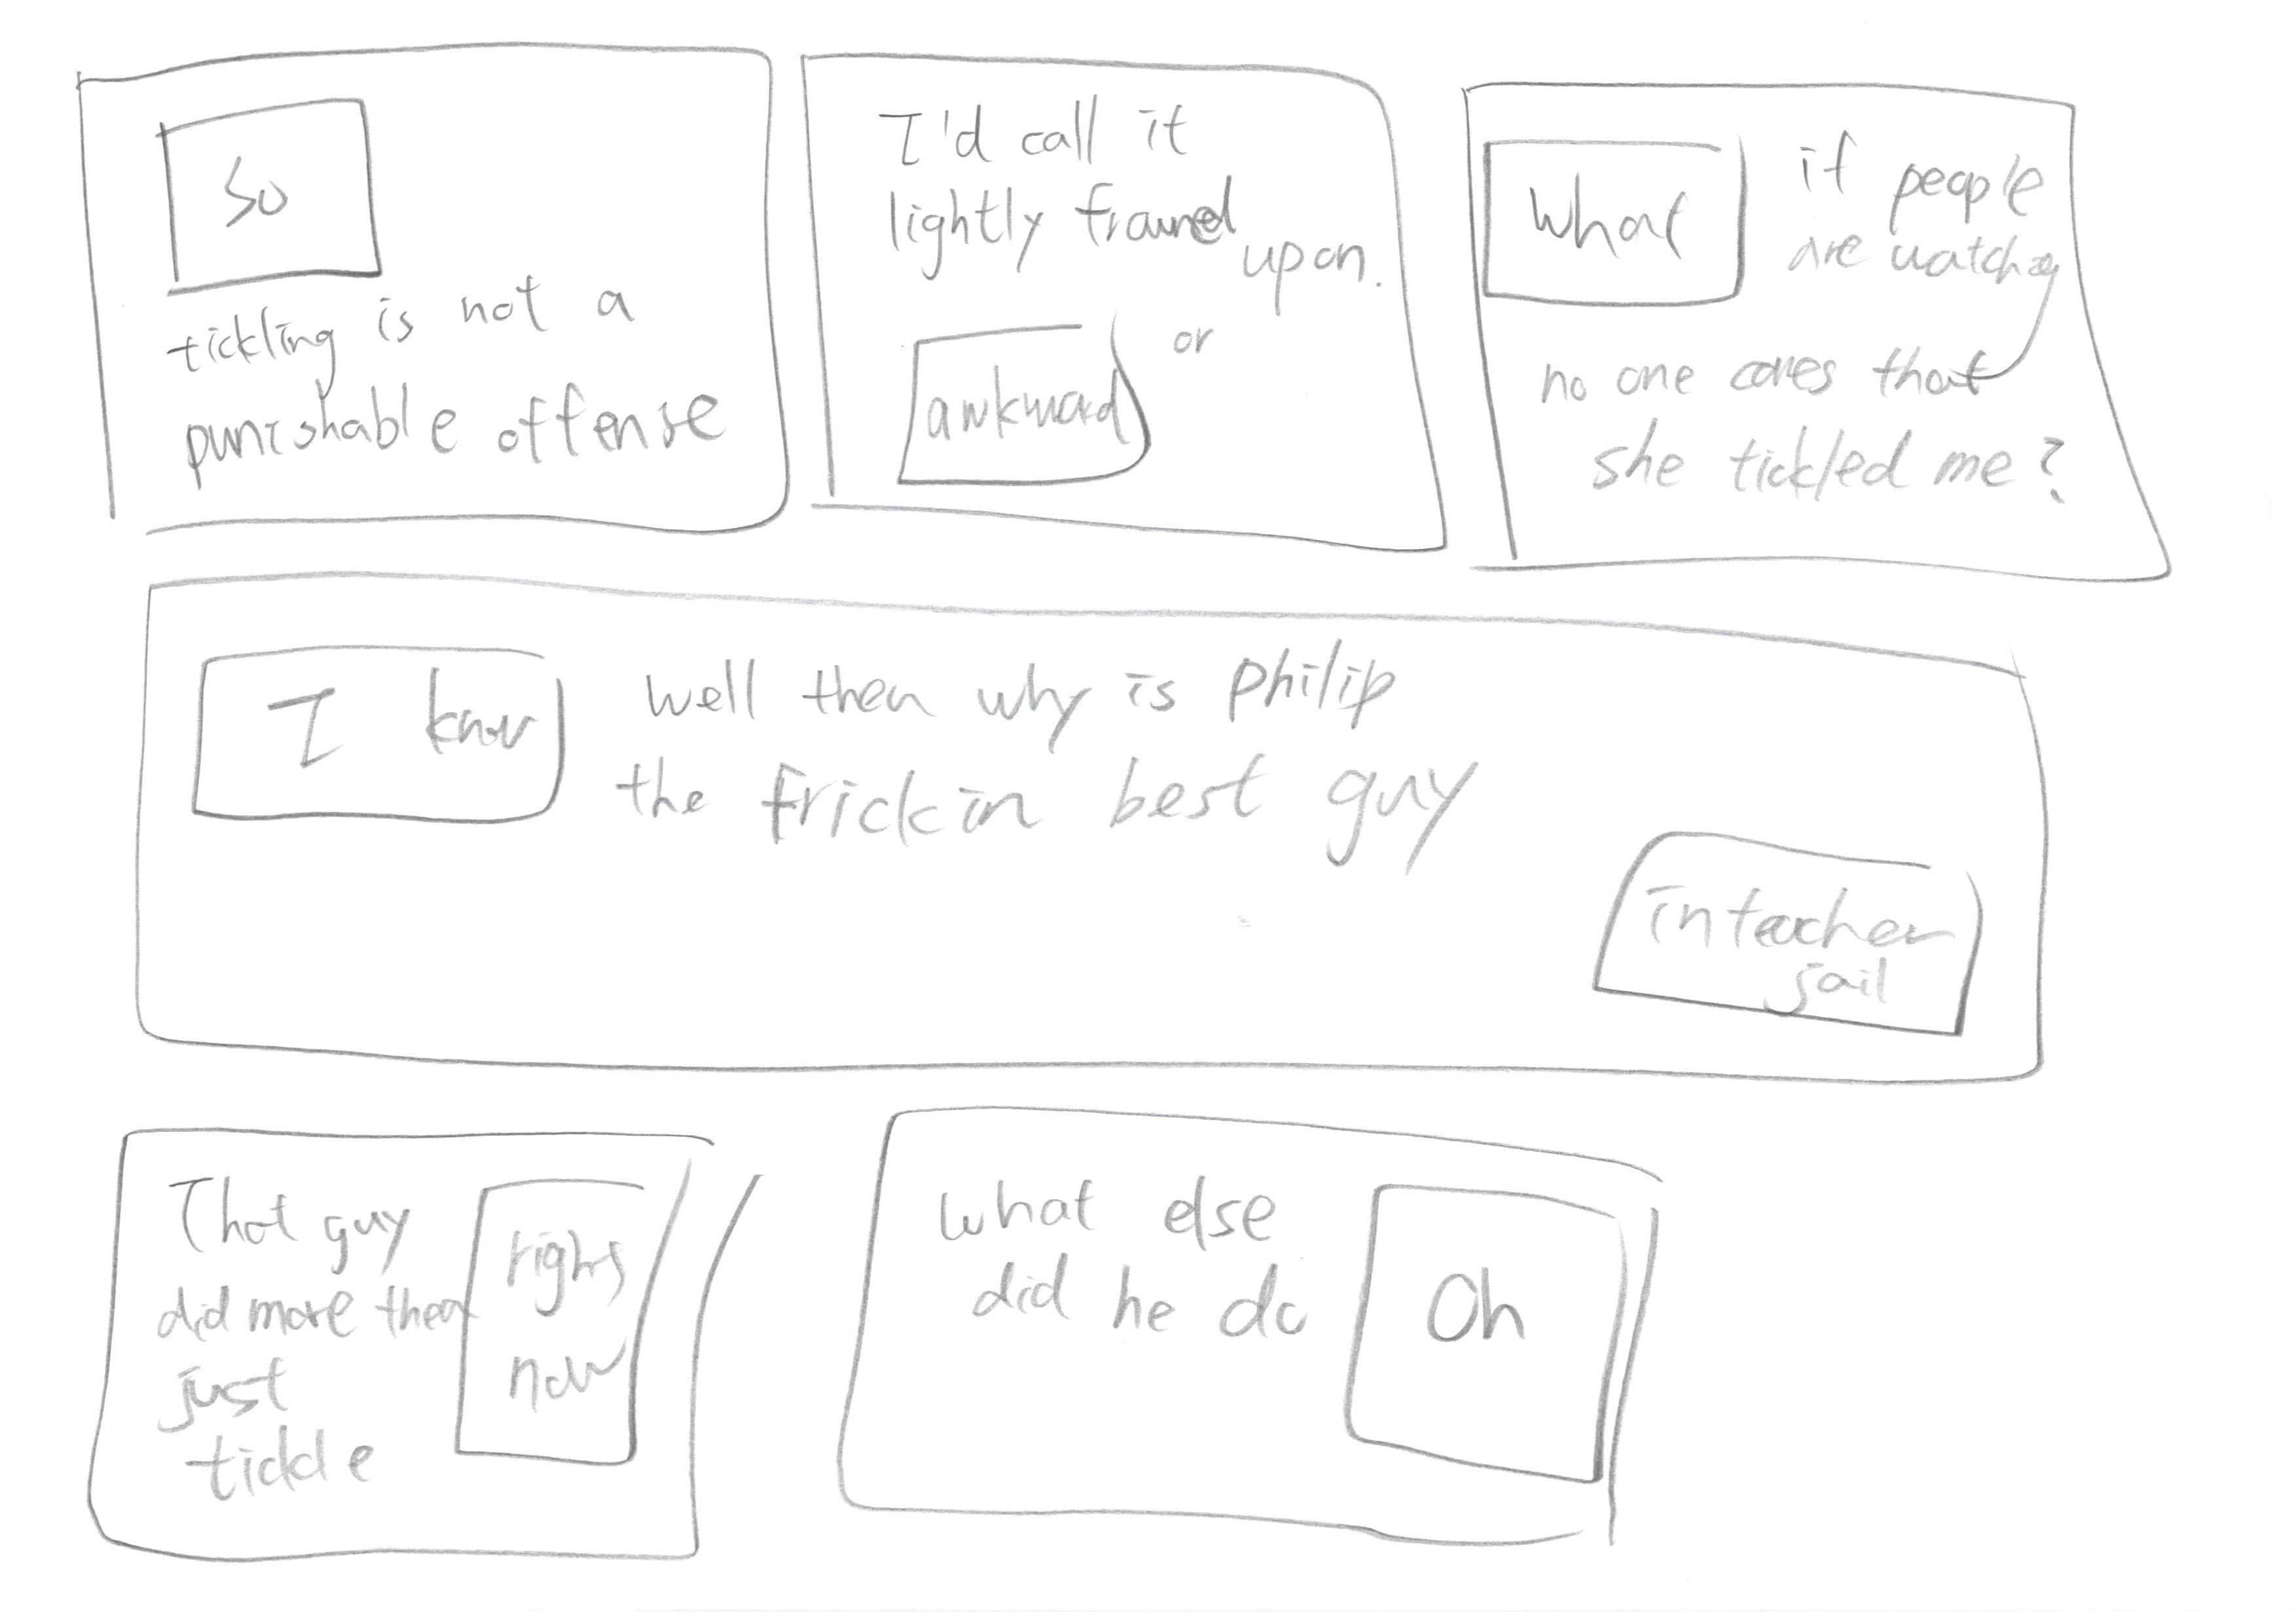 So
tickling is not a
punishable offense
I'd call it
lightly frowned
upon.
or
awkward
what
if people
are watching
no one cares that
she tickled me?
I know
well then why is philip
the frickin best guy
in teacher
jail
That guy
did more then
just
tickle
right
now
what else
did he do
Oh